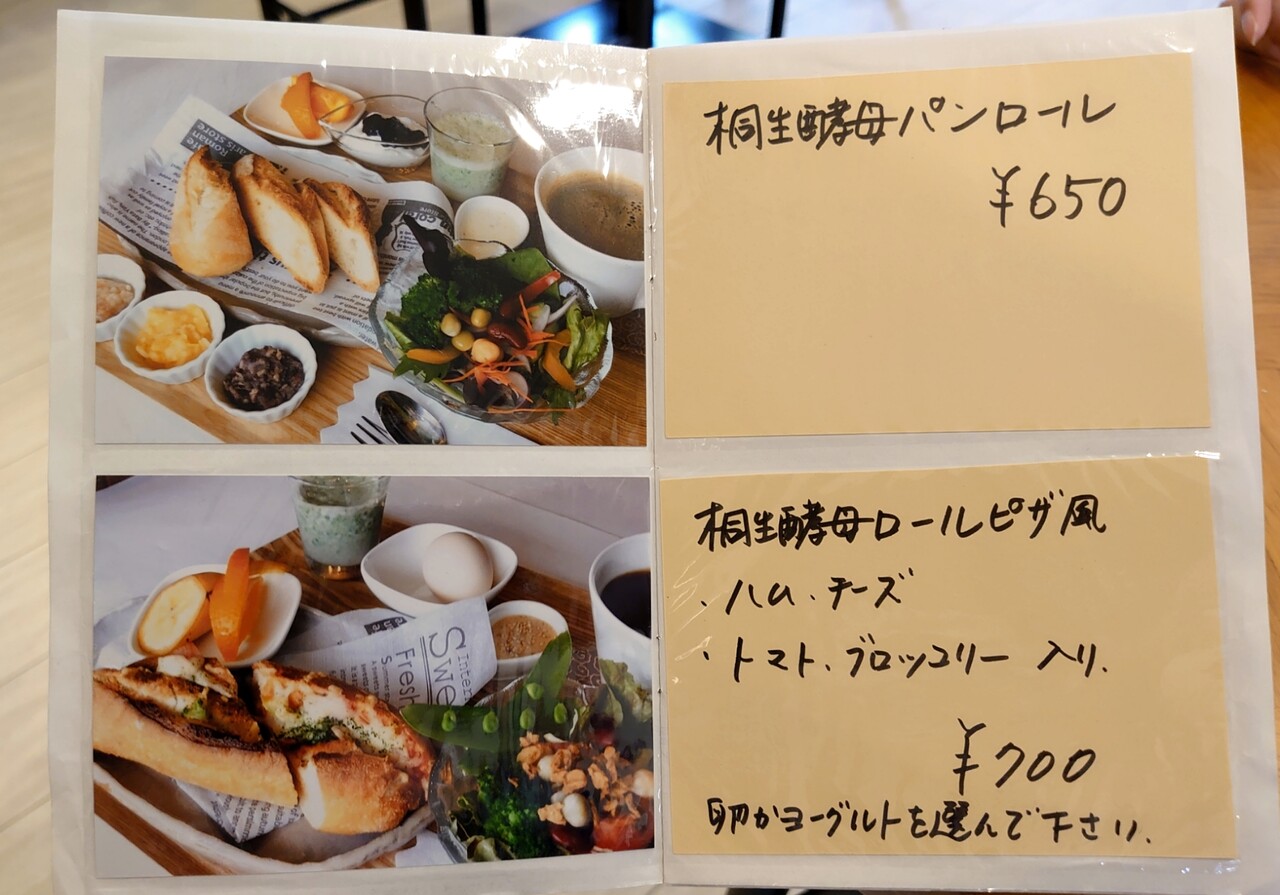 桐生酵母パンロール
¥650
桐生酵母ロールピザ風
・ハム、チーズ
・トマト、ブロッコリー 入り.
¥700
卵かヨーグルトを選んで下さい.
Roman
aris store
Inter
Swe
Fresh